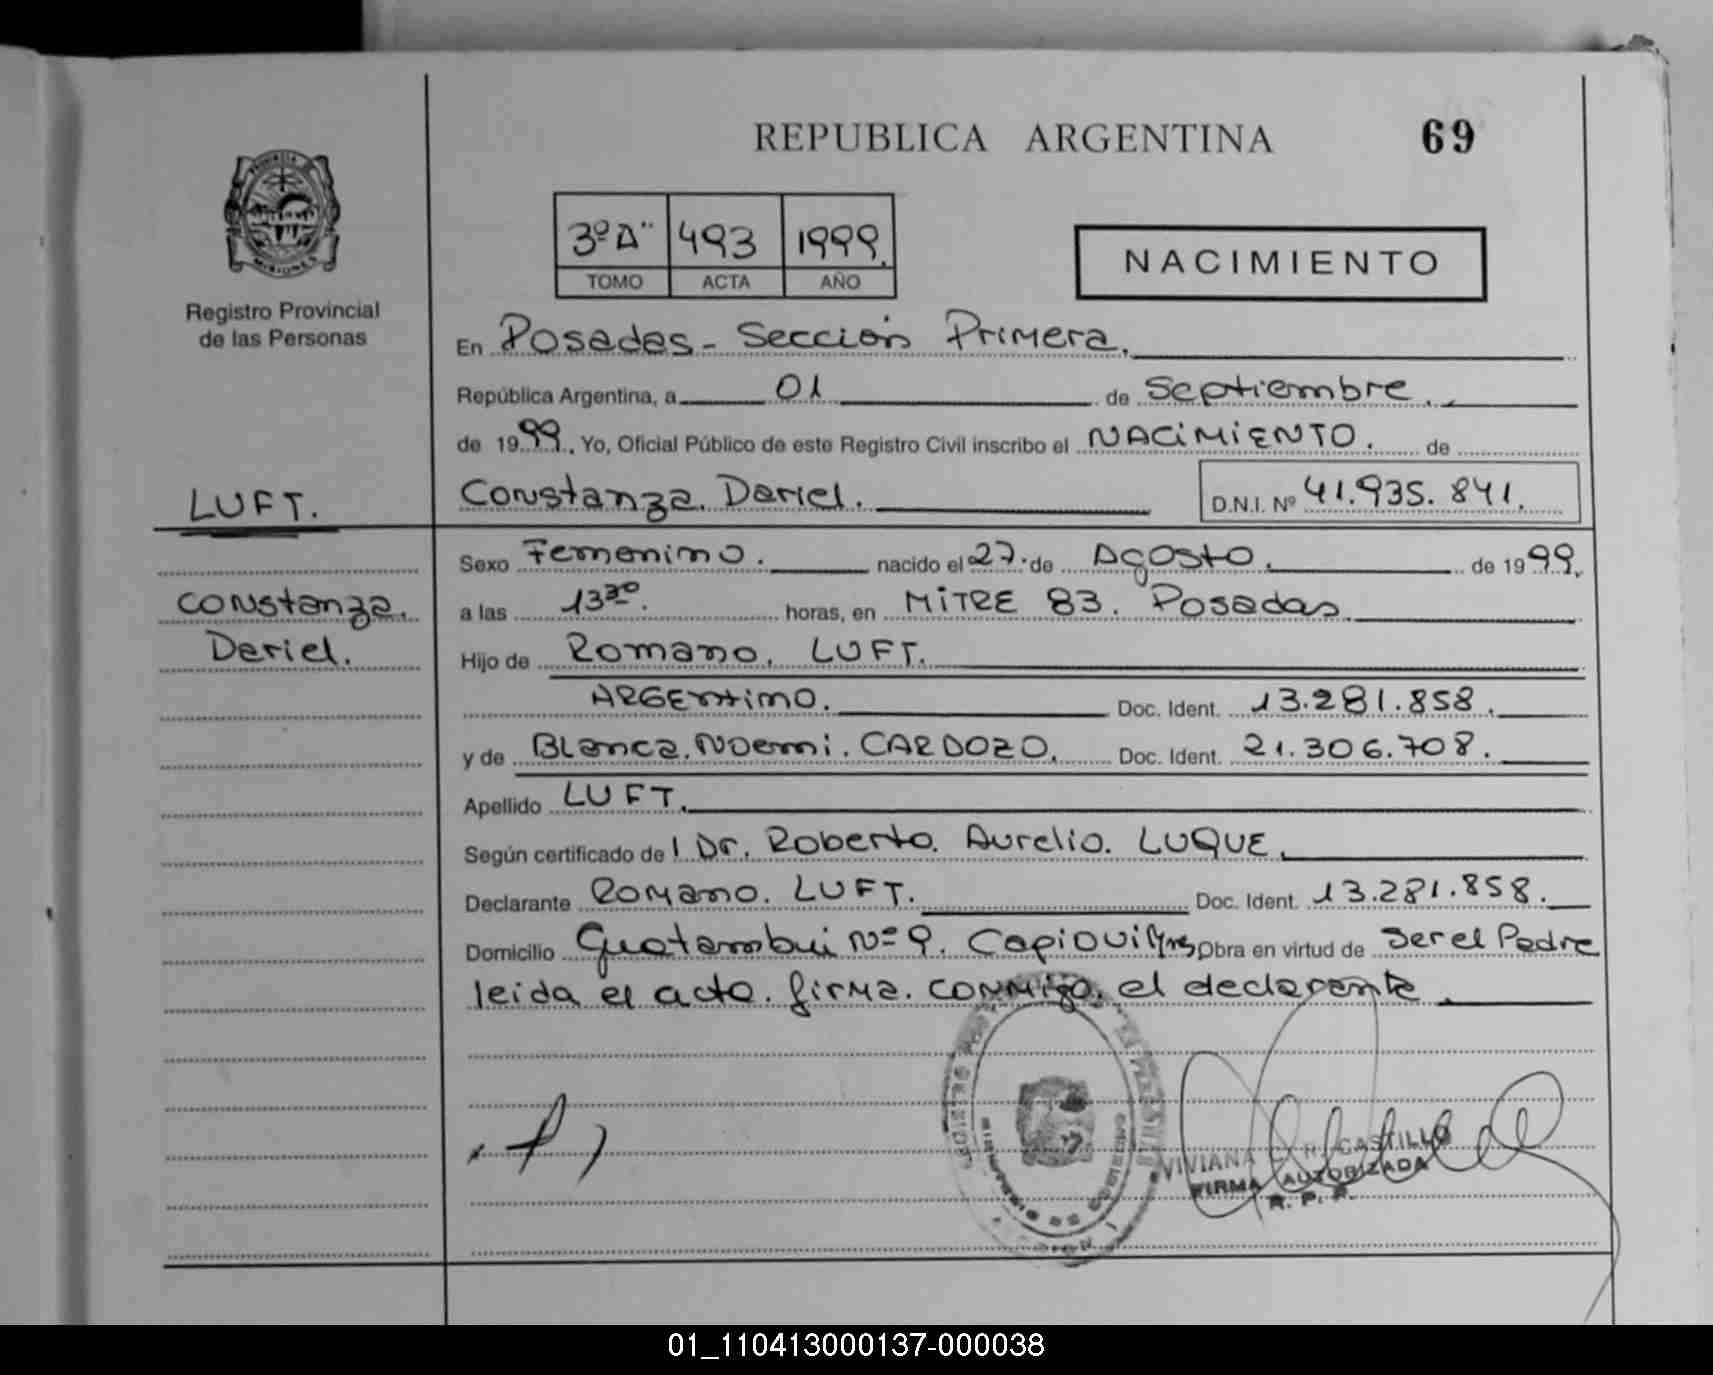 REPUBLICA ARGENTINA
69
MISIONES
Registro Provincial
de las Personas
3º A"
493
1999.
TOMO
ACTA
AÑO
NACIMIENTO
En Posadas - Sección Primera.
República Argentina, a 01 de Septiembre.
de 1999. Yo, Oficial Público de este Registro Civil inscribo el NACIMIENTO. de
LUFT.
Constanza. Dariel.
D.N.I. Nº 41.935.841.
Sexo Femenino. nacido el 27 de Agosto. de 1999.
Constanza.
Dariel.
a las 13 30. horas, en MITRE 83. Posadas.
Hijo de Romano. LUFT.
ARGENtino. Doc. Ident. 13.281.858.
y de Blanca. Noemi. CARDOZO. Doc. Ident. 21.306.708.
Apellido LUFT.
Según certificado de l Dr. Roberto. Aurelio. LUQUE.
Declarante Romano. LUFT. Doc. Ident. 13.281.858.
Domicilio Guatambui Nº 9. Capiovi Mnes Obra en virtud de Ser el Padre
leida el acta. firma. conmigo. el declarante
VIVIANA CASTILLO
FIRMA AUTORIZADA
R. P. P.
01_110413000137-000038